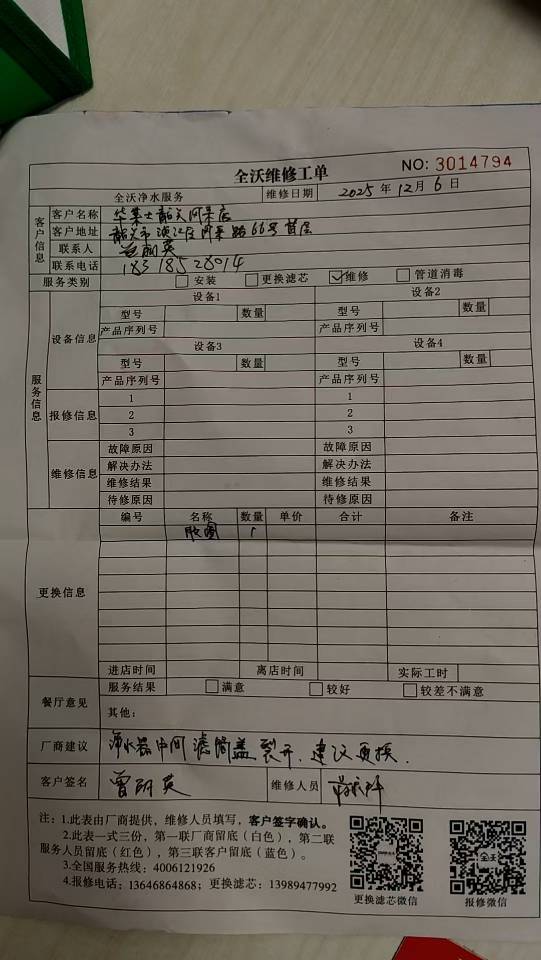 全沃维修工单
NO: 3014794
全沃净水服务 维修日期 2025年12月6日
客户信息
客户名称 华莱士韶关阿朵店
客户地址 韶关市浈江区 路66号首层
联系人 曾丽英
联系电话 18318528014
服务类别 安装 更换滤芯 维修 管道消毒
服务信息
设备信息
设备1 设备2
型号 数量 型号 数量
产品序列号 产品序列号
设备3 设备4
型号 数量 型号 数量
产品序列号 产品序列号
报修信息
1 1
2 2
3 3
维修信息
故障原因 故障原因
解决办法 解决办法
维修结果 维修结果
待修原因 待修原因
更换信息
编号 名称 数量 单价 合计 备注
胶圈 1
进店时间 离店时间 实际工时
餐厅意见
服务结果 满意 较好 较差不满意
其他:
厂商建议 净水器中间滤筒盖裂开,建议更换.
客户签名 曾丽英 维修人员
注:1.此表由厂商提供,维修人员填写,客户签字确认。
2.此表一式三份,第一联厂商留底(白色),第二联
服务人员留底(红色),第三联客户留底(蓝色)。
3.全国服务热线:4006121926
4.报修电话:13646864868;更换滤芯:13989477992
全沃
更换滤芯微信 报修微信